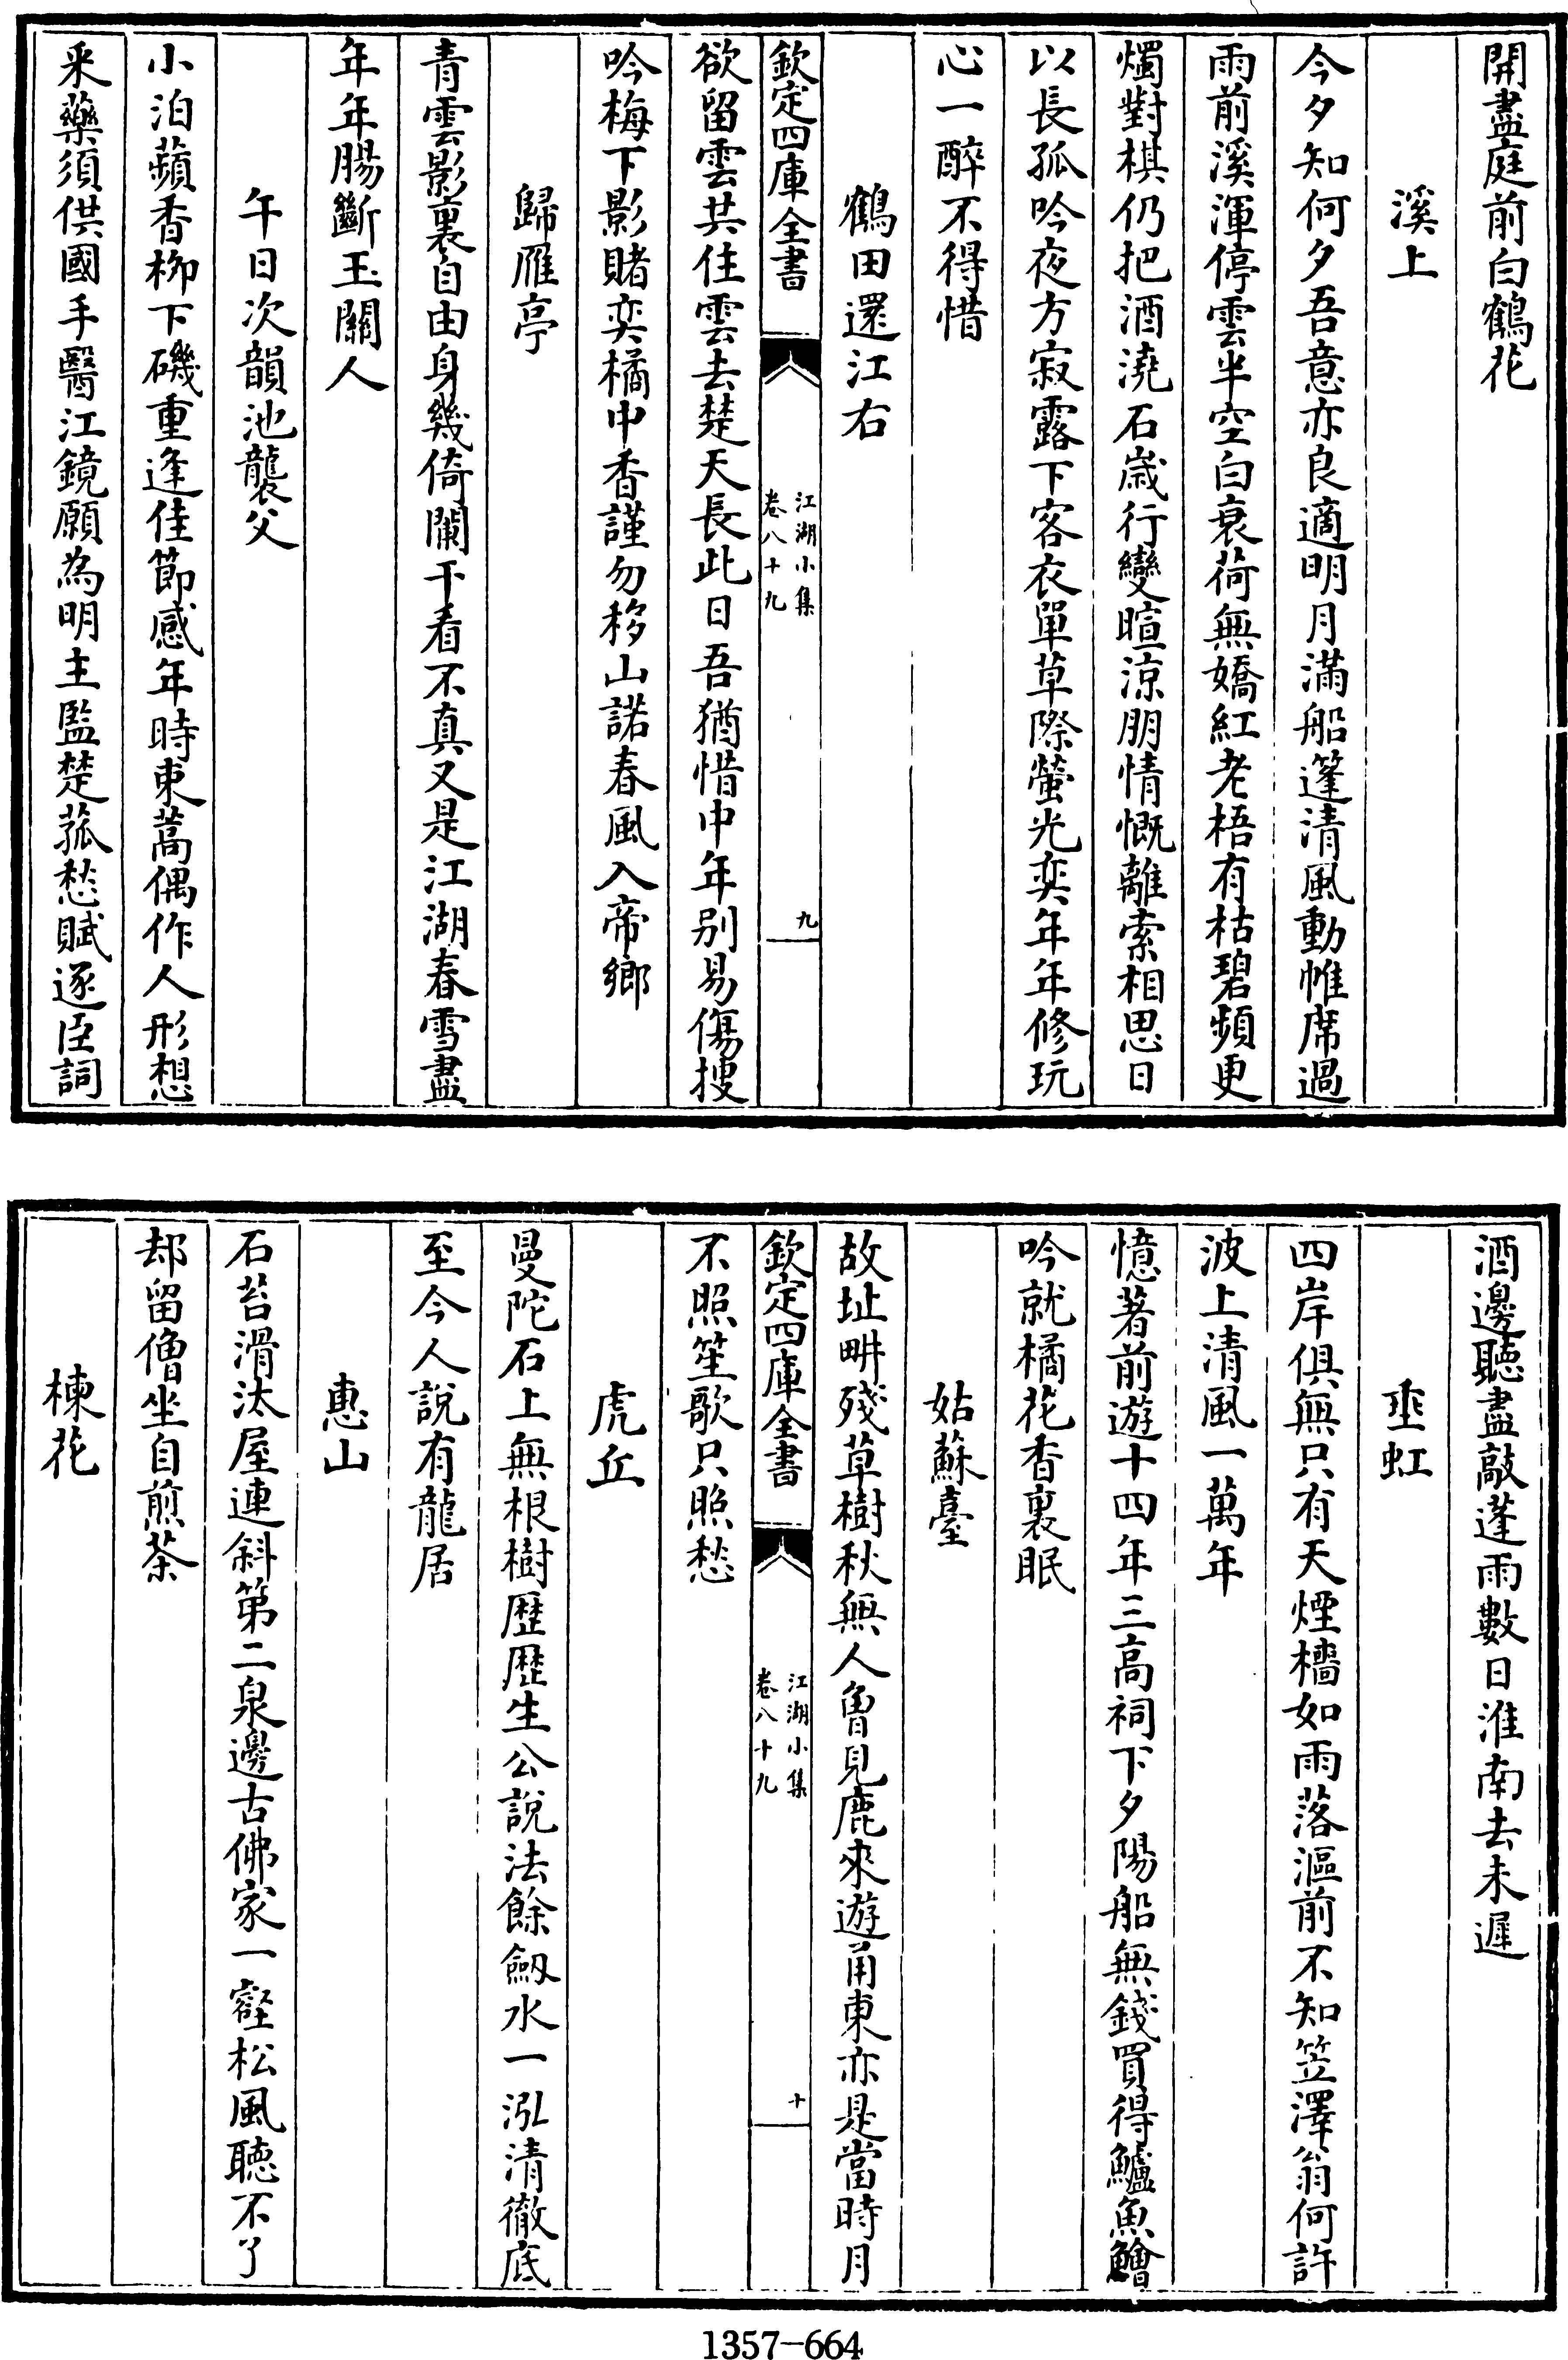 開盡庭前白鶴花
溪上
今夕知何夕吾意亦良適明月滿船篷清風動帷席過
雨前溪渾停雲半空白衰荷無嬌紅老梧有枯碧頻更
燭對棋仍把酒澆石歲行變暄涼朋情慨離索相思日
以長孤吟夜方寂露下客衣單草際螢光奕年年修玩
心一醉不得惜
鶴田還江右
欽定四庫全書
江湖小集
卷八十九
九
欲留雲共住雲去楚天長此日吾猶惜中年别易傷搜
吟梅下影賭奕橘中香謹勿移山諾春風入帝鄉
歸雁亭
青雲影裏自由身幾倚闌干看不真又是江湖春雪盡
年年腸斷玉關人
午日次韻池襲父
小泊蘋香柳下磯重逢佳節感年時束蒿偶作人形想
采藥須供國手醫江鏡願為明主監楚菰愁賦逐臣詞
酒邊聽盡敲蓬雨數日淮南去未遲
垂虹
四岸俱無只有天煙檣如雨落漚前不知笠澤翁何許
波上清風一萬年
憶著前遊十四年三高祠下夕陽船無錢買得鱸魚鱠
吟就橘花香裏眠
姑蘇臺
故址畊殘草樹秋無人曾見鹿來遊甬東亦是當時月
欽定四庫全書
江湖小集
卷八十九
十
不照笙歌只照愁
虎丘
曼陀石上無根樹歷歷生公說法餘劔水一泓清徹底
至今人說有龍居
惠山
石苔滑汰屋連斜第二泉邊古佛家一壑松風聽不了
却留僧坐自煎茶
楝花
1357-664